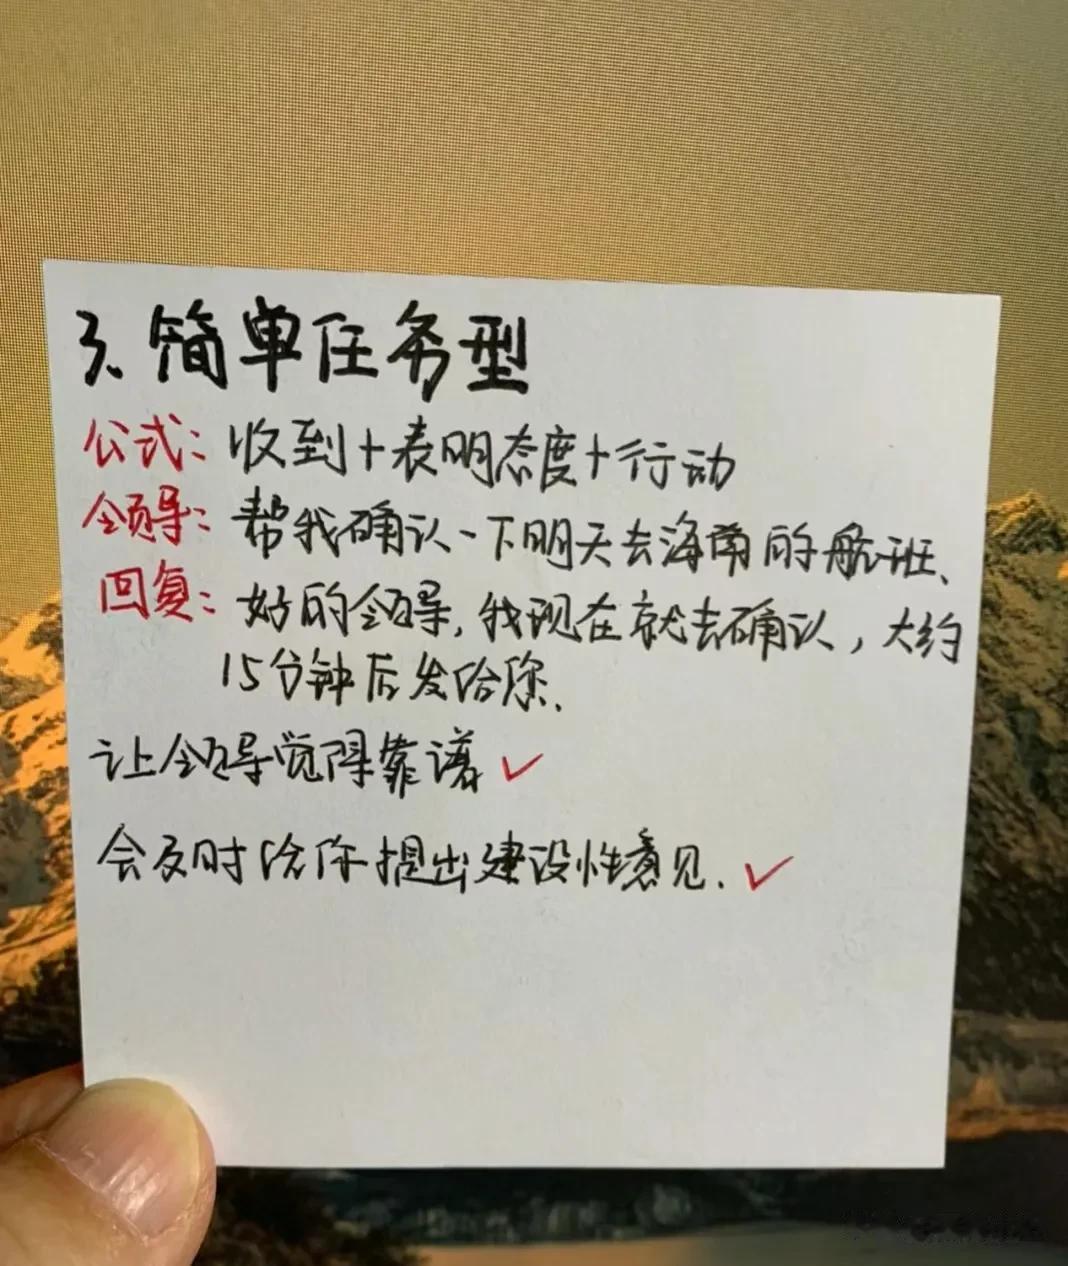 3、简单任务型
公式：收到+表明态度+行动
领导：帮我确认一下明天去海南的航班、
回复：好的领导，我现在就去确认，大约
15分钟后发给你、
让领导觉得靠谱✓
会及时给你提出建设性意见.✓